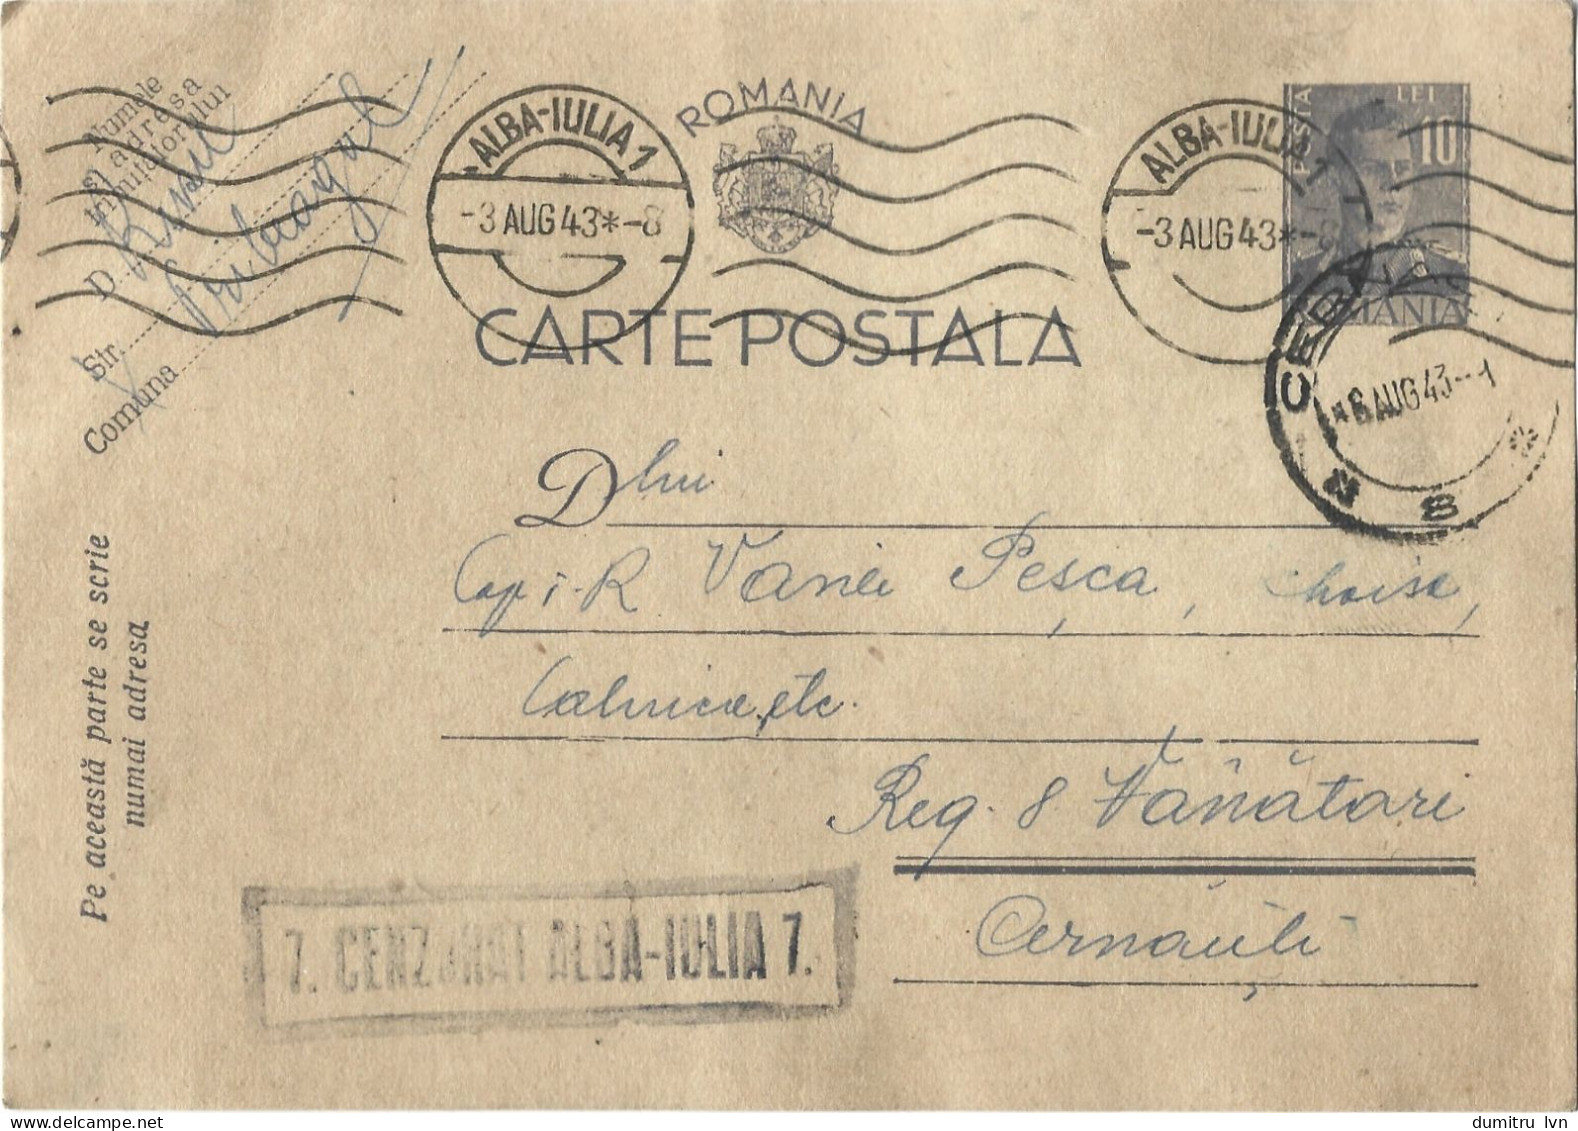 Numele
și adresa
trimițătorului
D.
Str.
Comuna
ALBA-IULIA 1
-3 AUG 43*-8
ROMANIA
ALBA-IULIA 1
-3 AUG 43*-8
POSTA
LEI
10
ROMANIA
CARTE POSTALA
6 AUG 43--1
Dlui
Cap i-R Vanea Peșca,
etc.
Reg. 8 Vânători
Cernăuți
Pe această parte se scrie
numai adresa
7. CENZURAT ALBA-IULIA 7.
dumitru lvn